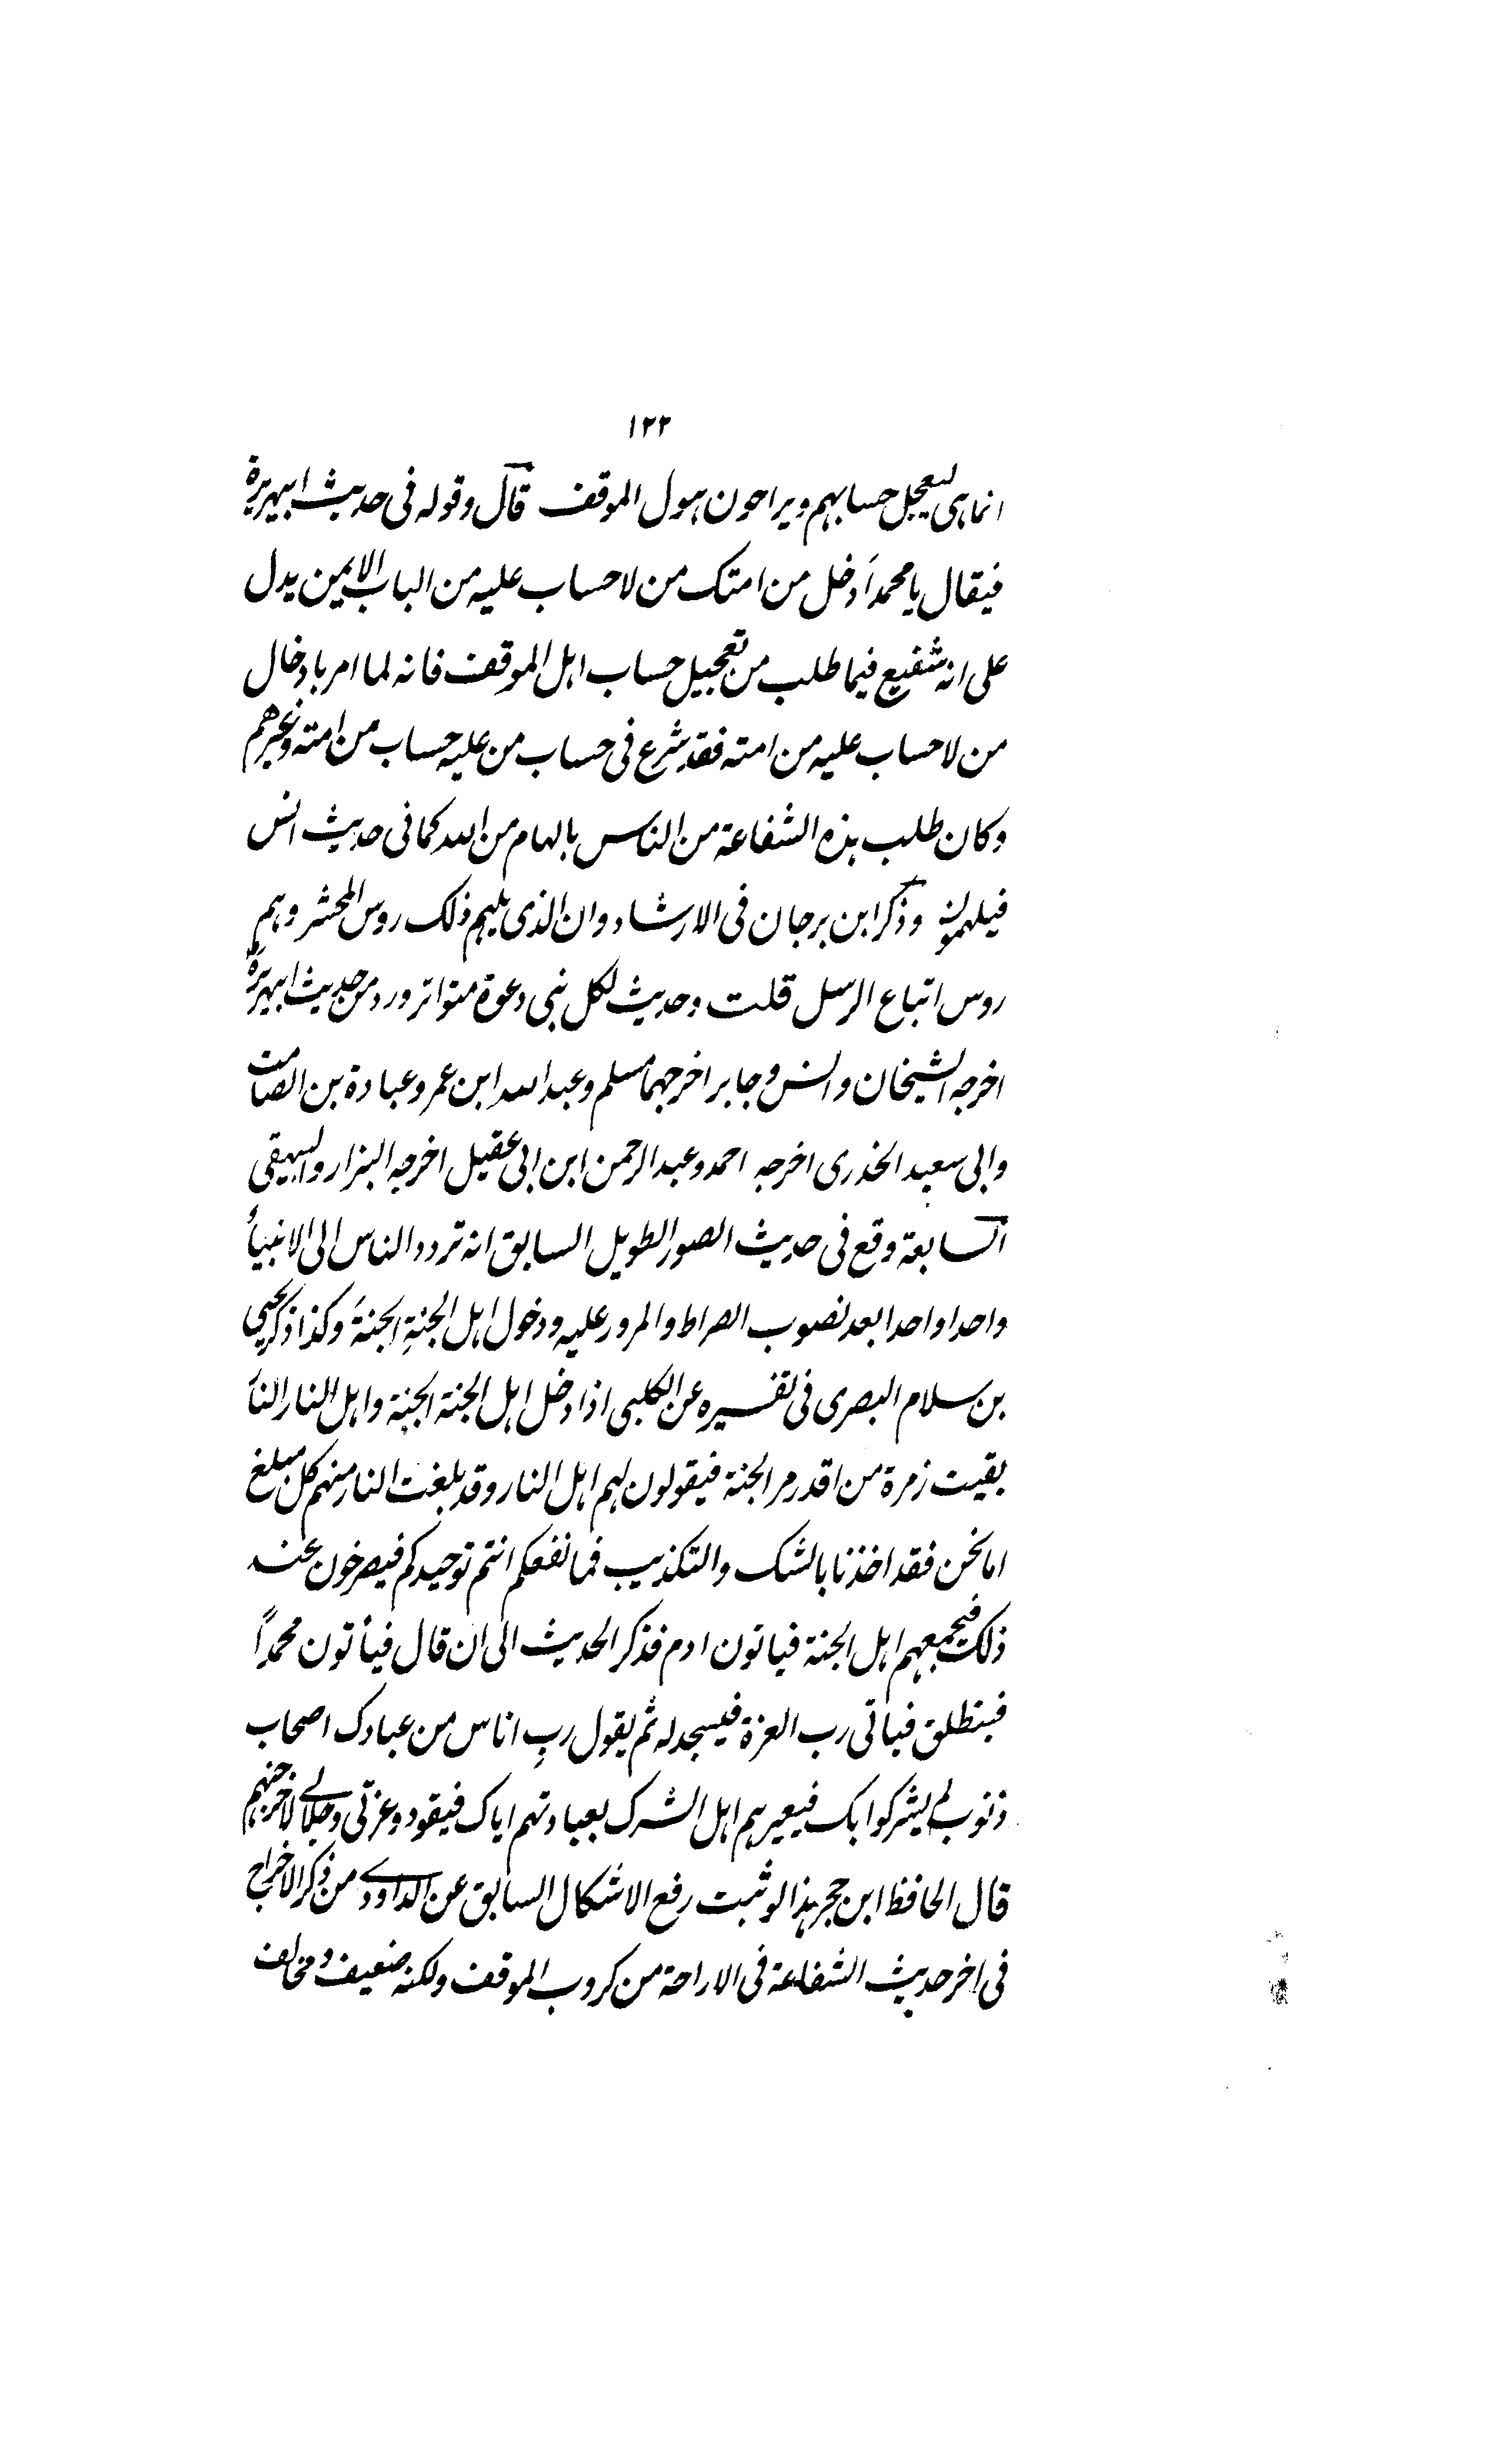 ١٢٢
انما هى ليعجل حسابهم ويراحون هول الموقف قال وقوله فى حديث ابى هريرة
فيقال يا محمد أدخل من امتك من لا حساب عليه من الباب الايمن يدل
على انه شفيع فيما طلب من تعجيل حساب اهل الموقف فانه لما امر بادخال
من لا حساب عليه من امته فقد شرع فى حساب من عليه حساب من امته وغيرهم
وكان طلب هذه الشفاعة من الناس بالهام من الله كما فى حديث انس
فيلهمون وذكر ابن برجان فى الارشاد وان الذى يلهم ذلك روس المحشر وهم
روس اتباع الرسل قلت وحديث لكل نبى دعوة متواتر ورد من حديث ابى هريرة
اخرجه الشيخان وانس وجابر اخرجهما مسلم وعبد الله ابن عمر وعبادة بن الصامت
وابى سعيد الخدرى اخرجه احمد وعبد الرحمن ابن ابى عقيل اخرجه البزار والبيهقى
السابعة وقع فى حديث الصور الطويل السابق انه تردد الناس الى الانبيأ
واحدا واحدا بعد نصوب الصراط والمرور عليه ودخول اهل الجنةِ الجنةَ وكذا ذكر يحيى
بن سلام البصرى فى تفسيره عن الكلبى اذا دخل اهل الجنة الجنة واهل النار النا
بقيت زمرة من اقدر مر الجنة فيقولون لهم اهل النار وقد بلغت النار منهم كل مبلغ
اما نحن فقد اخذنا بالشك والتكذيب فما نفعكم انتم توحيدكم فيصرخون عند
ذلك فيجمعهم اهل الجنة فياتون ادم فذكر الحديث الى ان قال فيأتون محمداً
فينطلق فياتى رب العزة فيسجد له ثم يقول ربِ اناس من عبادك اصحاب
ذنوب لم يشركوا بك فيعيرهم اهل الشرك بعبادتهم اياك فيقود وعزتى وجلالى لاخرجنهم
قال الحافظ ابن حجر هذا لو ثبت رفع الاشكال السابق عن الداودى من ذكر الاخراج
فى اخر حديث الشفاعة فى الاراحة من كروب الموقف ولكنه ضعيف ومخالف